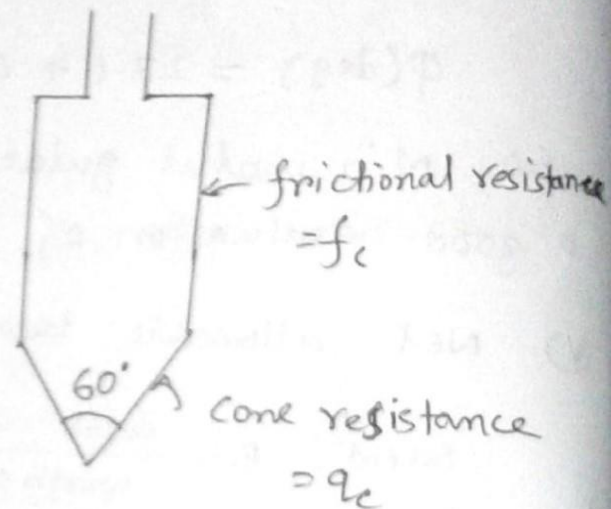 frictional resistance
= fc
60°
cone resistance
= qc